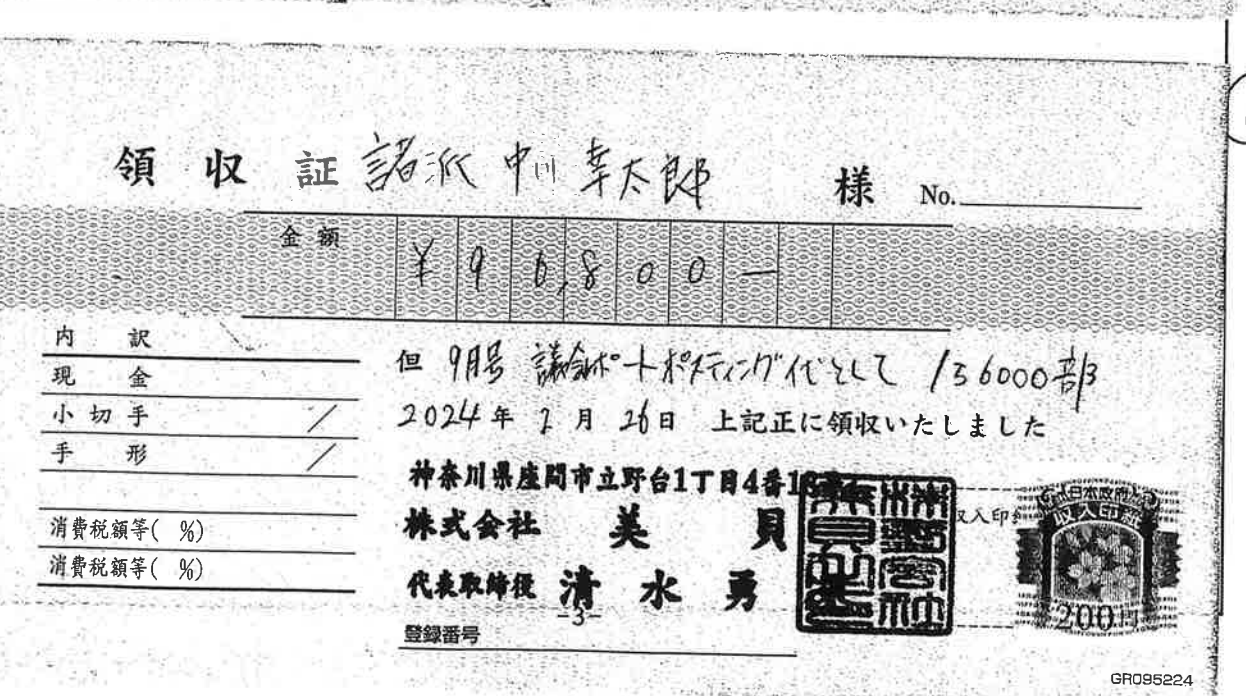 領収証 諸派 中川 幸太郎 様 No.
金額 ¥96,800-
内訳
現金
小切手 /
手形 /
消費税額等( %)
消費税額等( %)
但 9月号 議会ポートポスティング代として 136000部
2024年 2月 26日 上記正に領収いたしました
神奈川県座間市立野台1丁目4番
株式会社 美貝
代表取締役 清水勇
-3-
登録番号
収入印
日本政府
収入印紙
200円
GR095224